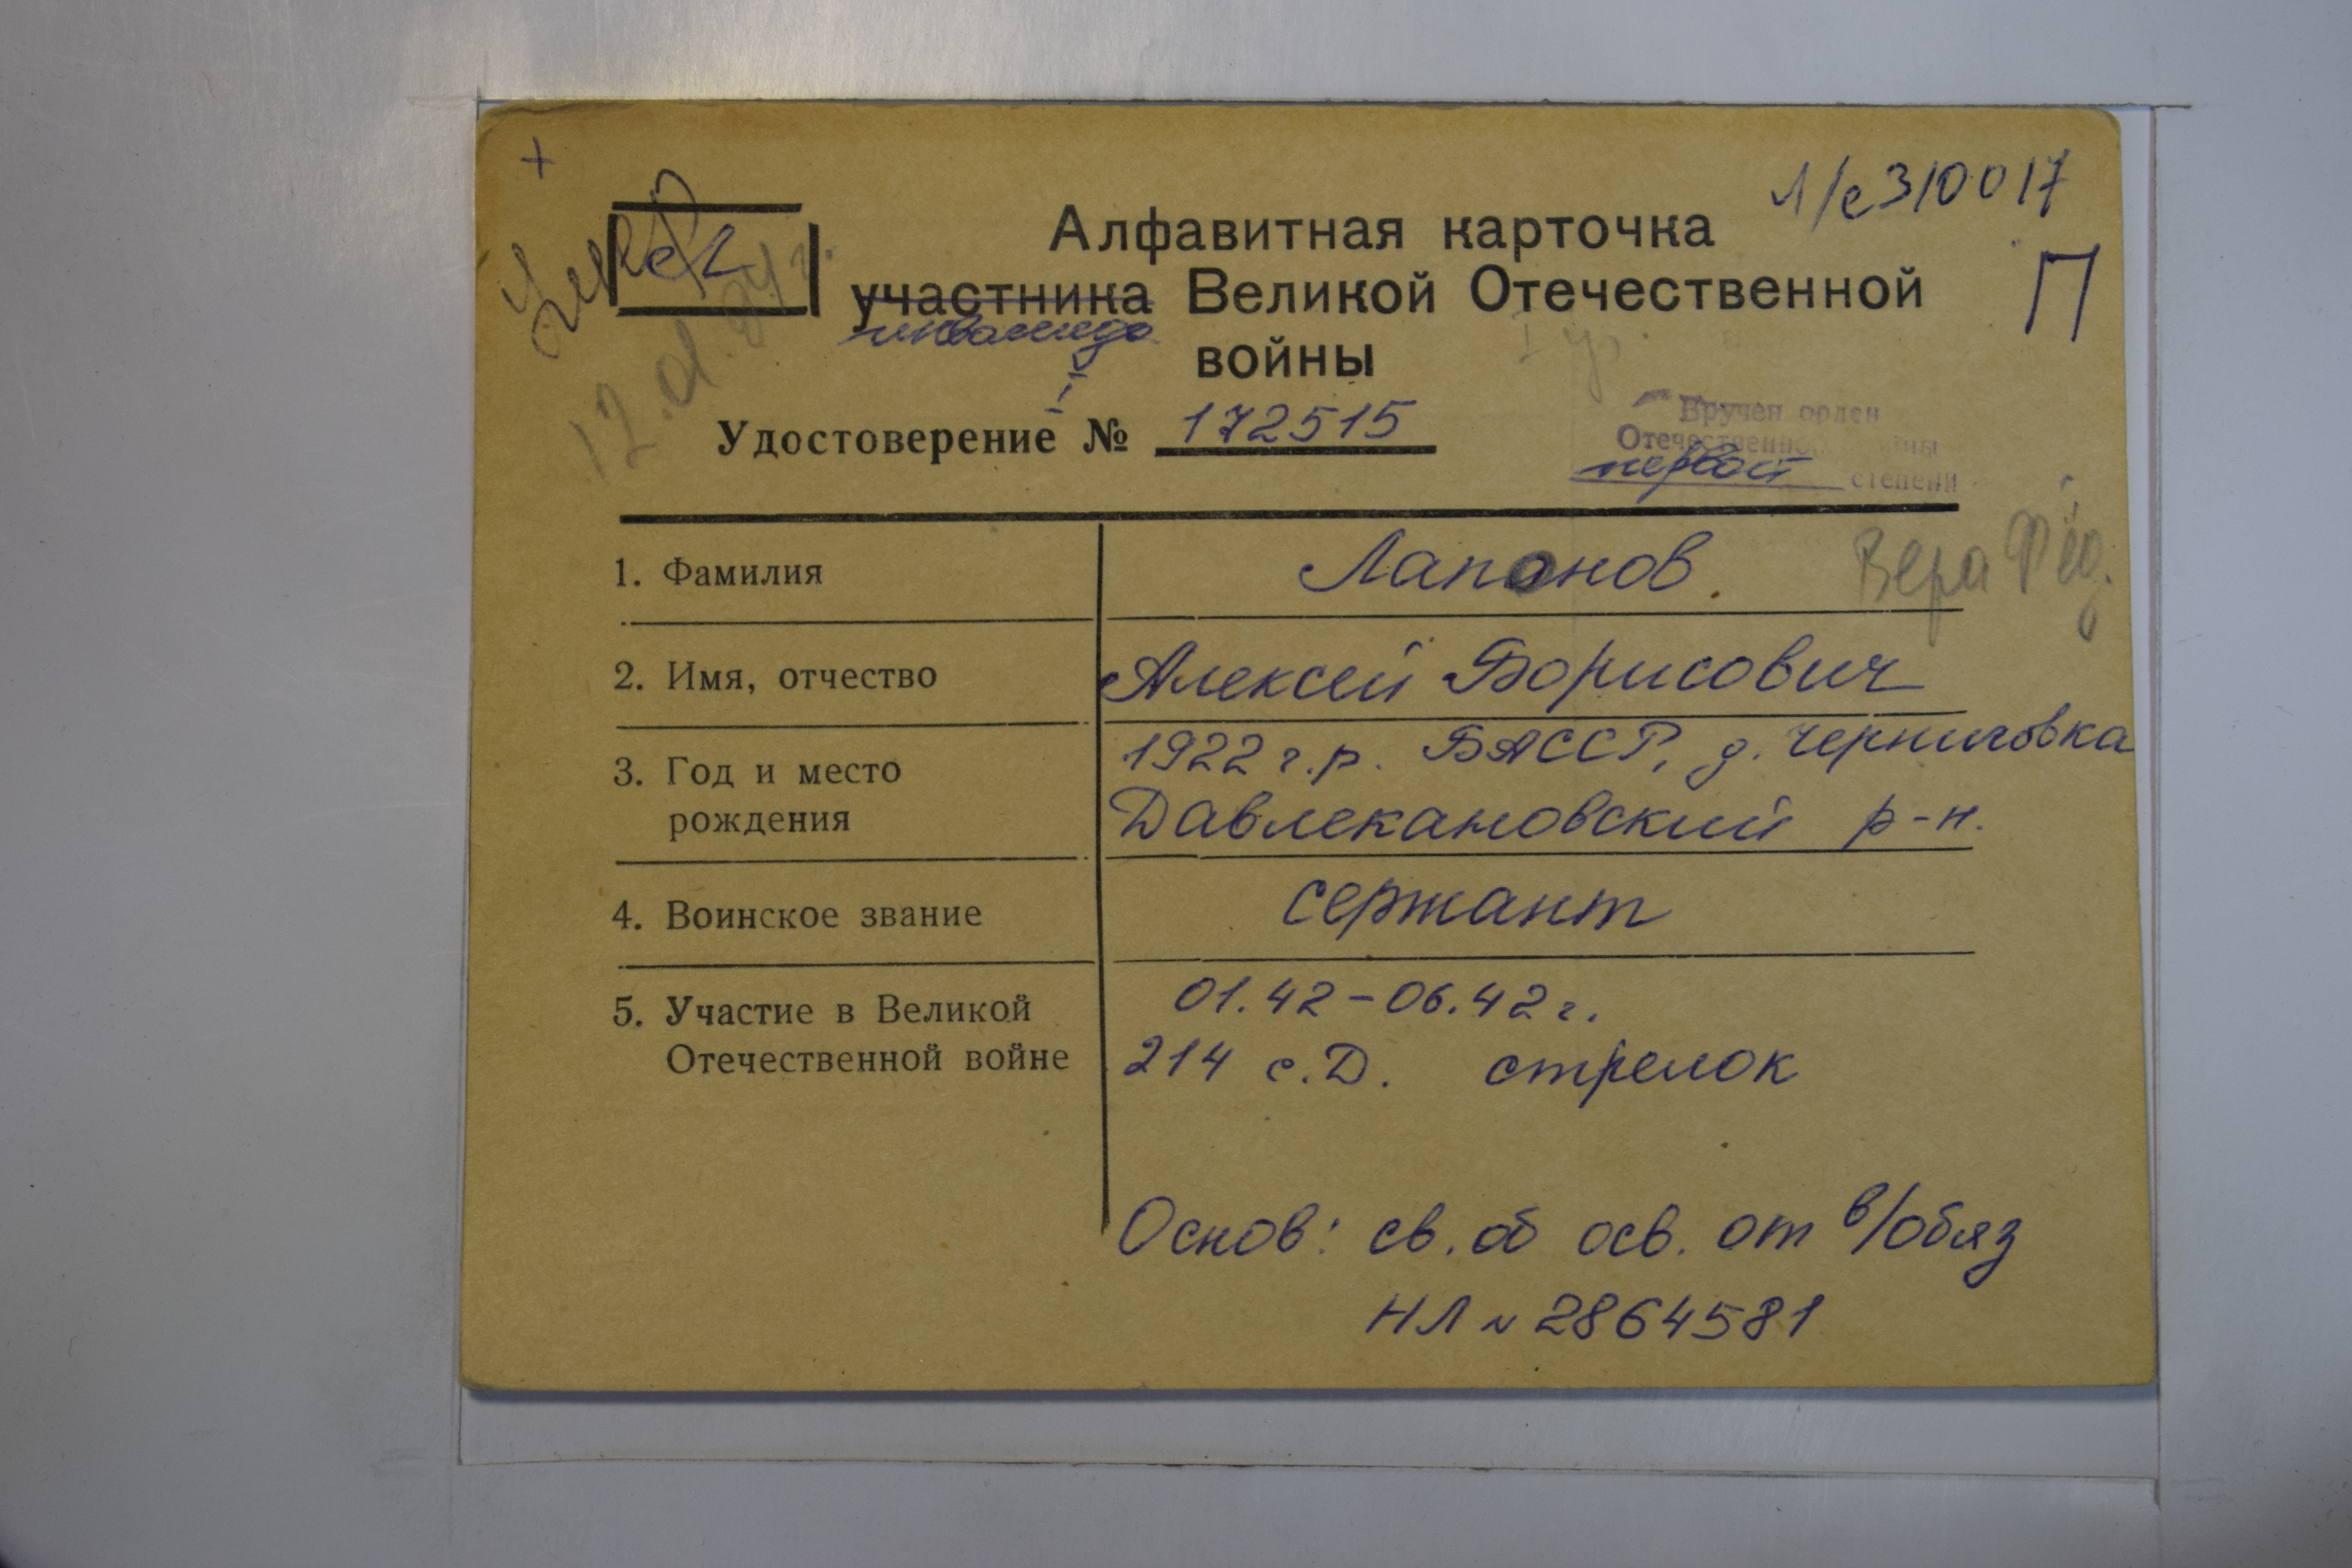 +
Л/с 310017
Умер
12.01.94 г.
Алфавитная карточка
П
участника Великой Отечественной
инвалида
войны
I гр.
I
Удостоверение № 172515
Вручен орден
Отечественной войны
первой степени
1. Фамилия Лапонов.
Вера Фёд.
2. Имя, отчество Алексей Борисович
3. Год и место 1922 г.р. БАССР, д. Черниговка
рождения Давлекановский р-н.
4. Воинское звание сержант
5. Участие в Великой 01.42-06.42 г.
Отечественной войне 214 с.Д. стрелок
Основ: св. об осв. от в/обяз
НЛ № 2864581